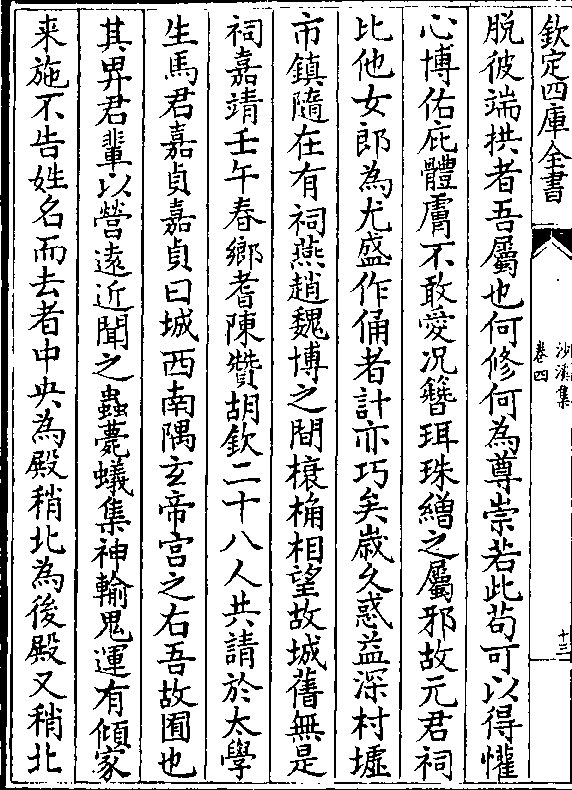 欽定四庫全書
沙溪集
卷四
十三
脱彼端拱者吾屬也何修何為尊崇若此苟可以得懽
心博佑庇體膚不敢愛况簪珥珠繒之屬邪故元君祠
比他女郎為尤盛作俑者計亦巧矣嵗久惑益深村墟
市鎮隨在有祠燕趙魏博之間榱桷相望故城舊無是
祠嘉靖壬午春鄉耆陳贊胡欽二十八人共請於太學
生馬君嘉貞嘉貞曰城西南隅玄帝宫之右吾故囿也
其畀君輩以營遠近聞之蟲薨蟻集神輸鬼運有傾家
来施不告姓名而去者中央為殿稍北為後殿又稍北